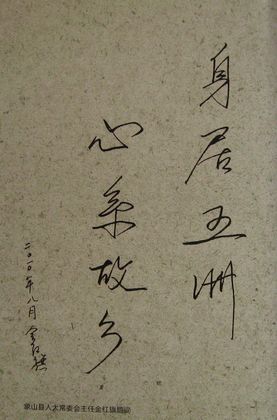 身居五洲
心系故乡
二〇一〇年八月 金红旗
象山县人大常委会主任金红旗题词